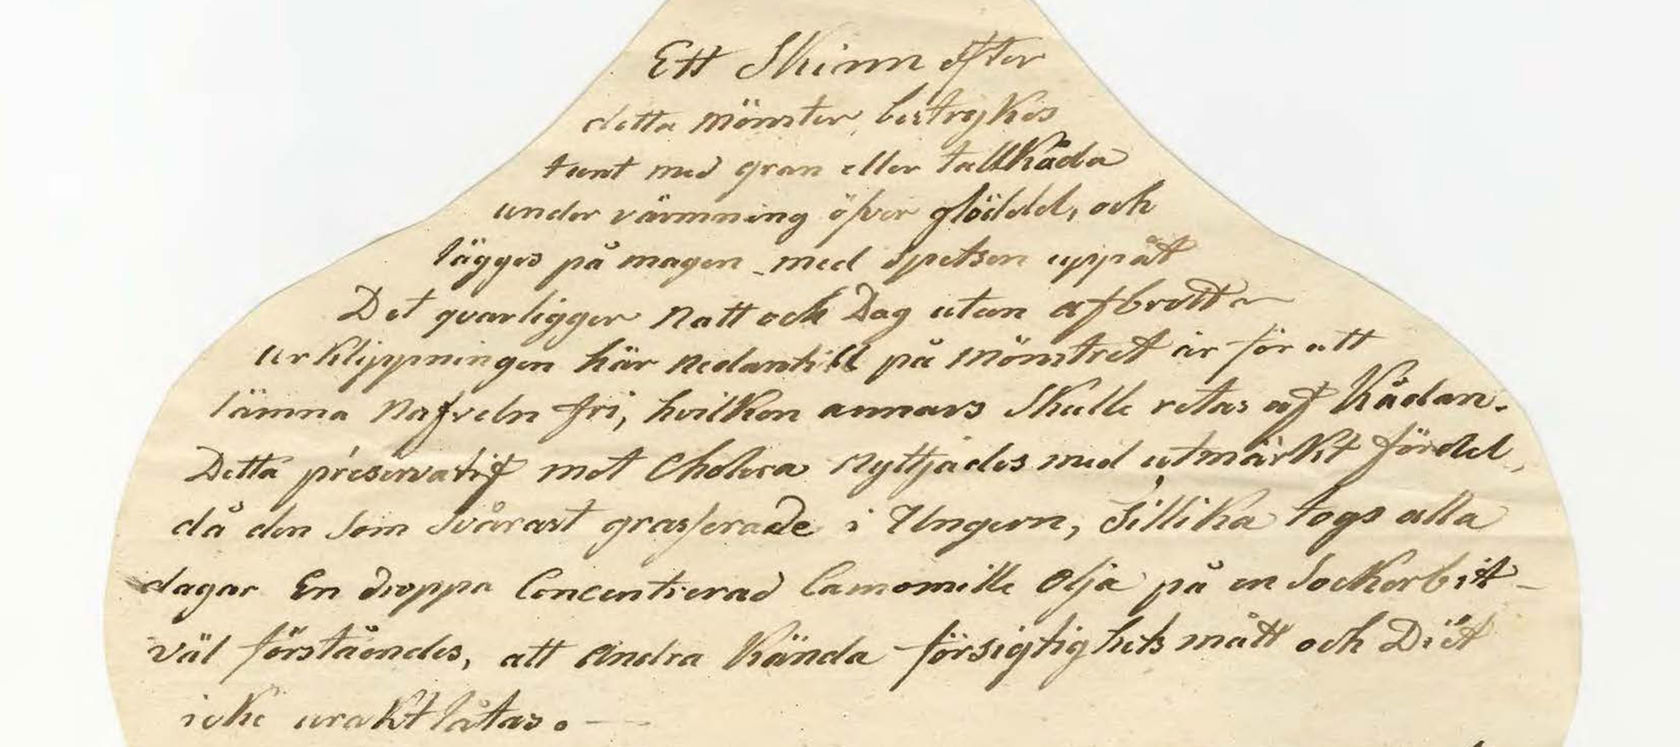 Ett Skinn efter
detta Mönster, bestrykes
tunt med gran eller tallkåda
under värmning öfver glödeld, och
lägges på magen med Spetsen uppåt
Det quarligger Natt och Dag utan afbrott
urklippningen här nedantill på Mönstret är för att
lämna Nafveln fri, hvilken annars Skulle retas af Kådan.
Detta préservatif mot Cholera Nyttjades med utmärkt fördel,
då den Som Svårast grasserade i Ungern, Tillika togs alla
dagar En droppa Concentrerad Camomille Olja på en Sockerbit –
väl förståendes, att Andra Kända försigtighets mått och Diët
icke uraktlåtas. —